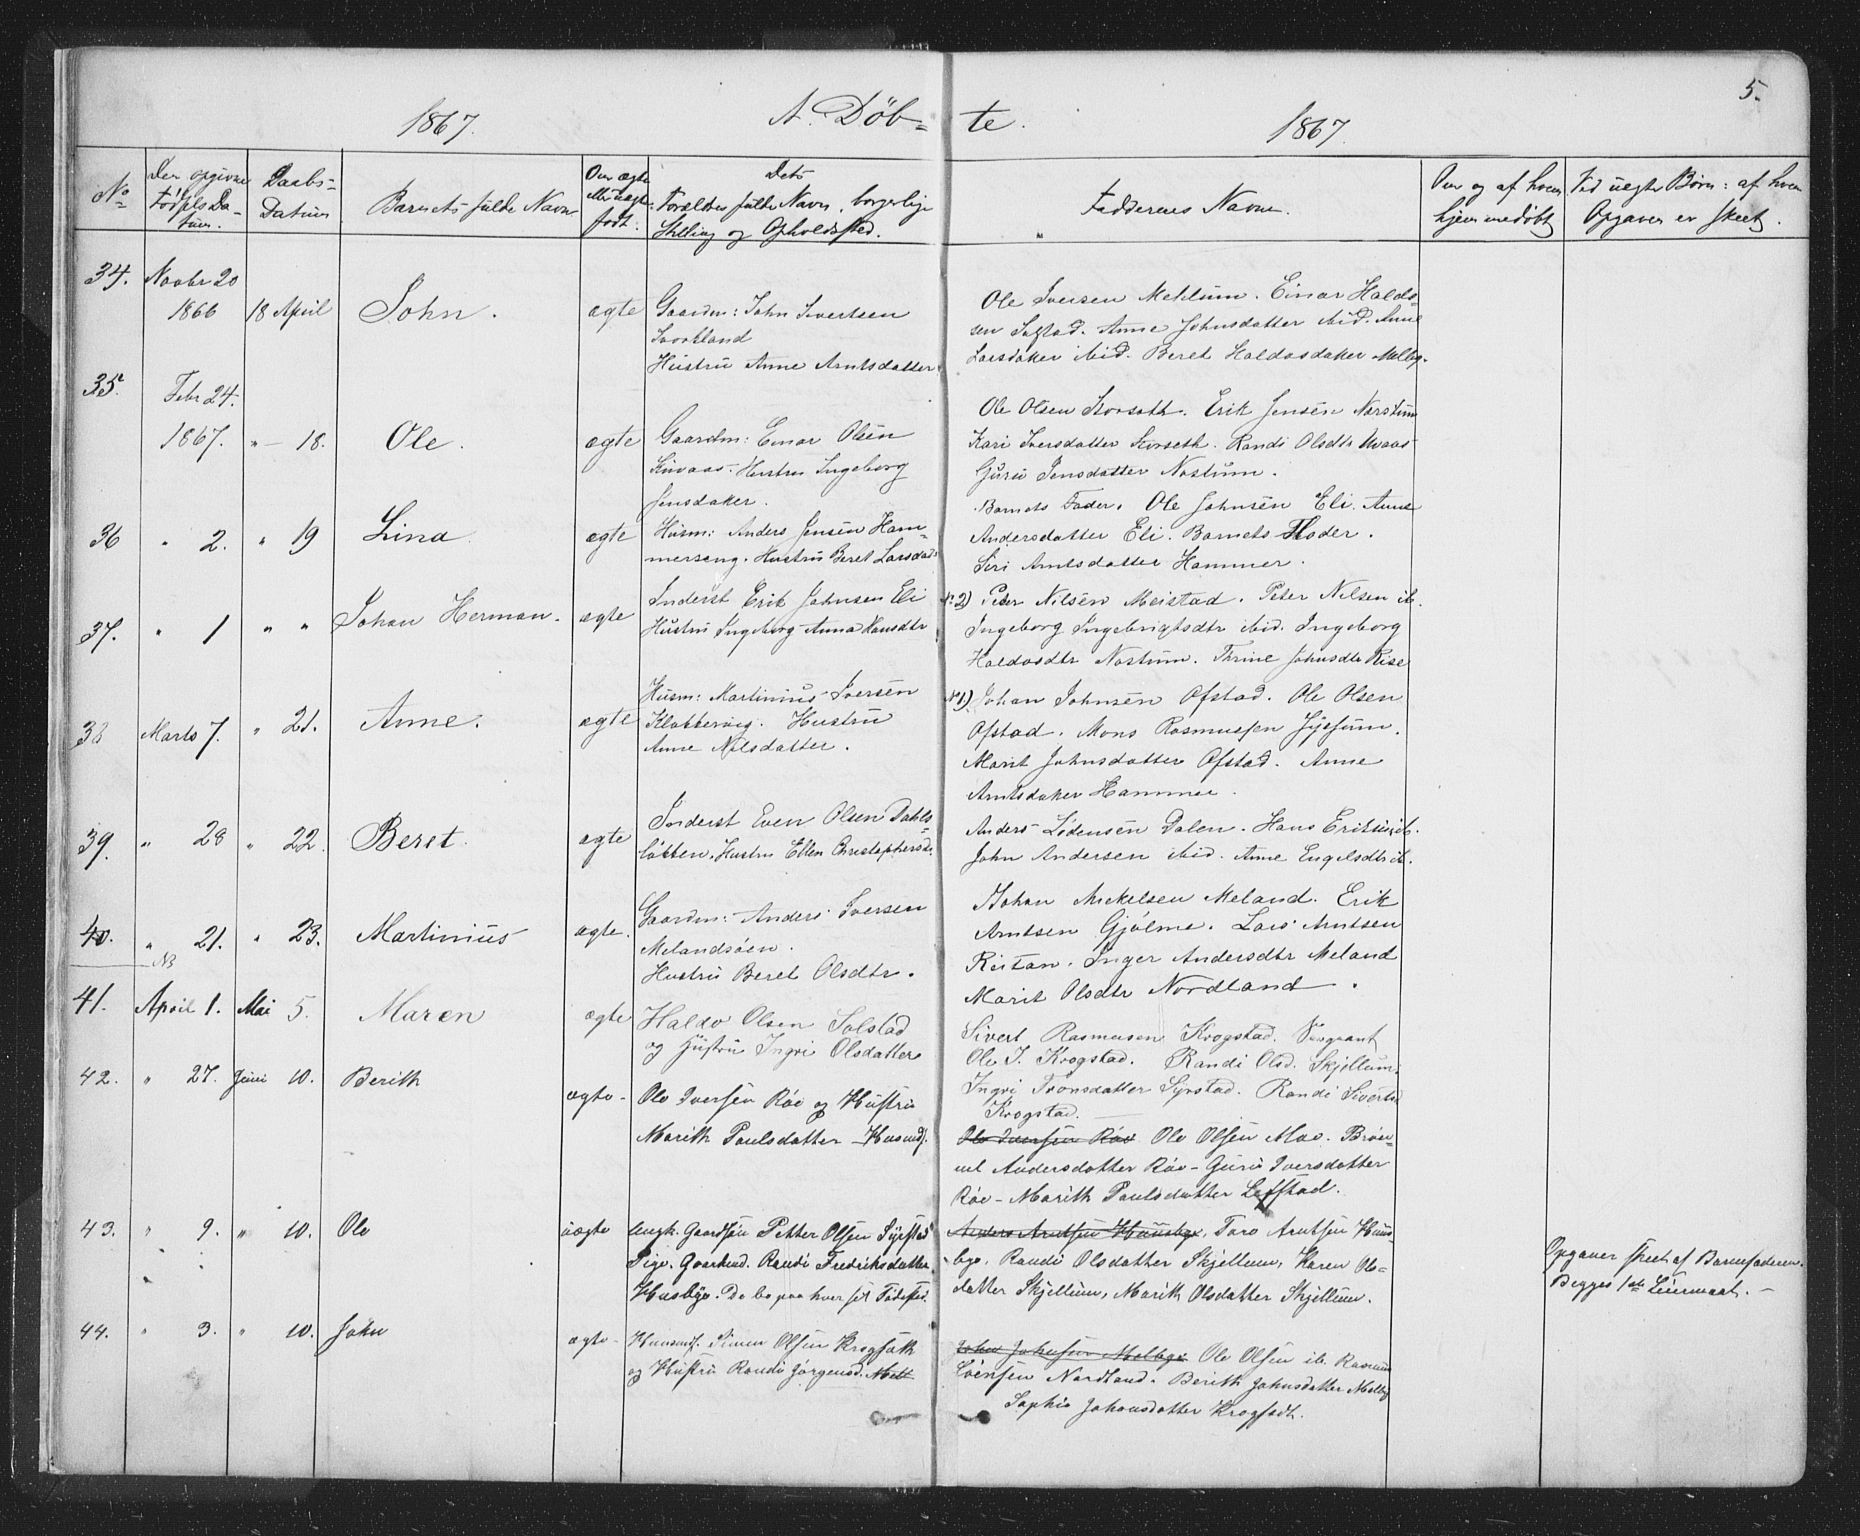 5.
1867. A. Døb= te. 1867
No
Den opgivne Fødsels Da-tum.
Daabs= Datum
Barnets fulde Navn
Om ægte eller uægte født.
Dets Forældres fulde Navn, borgerlige Stilling og Opholdssted.
Faddernes Navne.
Om og af hvem hjemmedøbt
Ved uegte Børn: af hvem Opgaven er skeet.
34. Novbr 20 1866 18 April John. ægte
Gaardm: John Sivertsen
Hustru Anne Arntsdatter.
Ole Iversen Mehlum. Einar Halds-
sen Solstad. Anne Johnsdatter ibid. Anne
Larsdatter ibid. Beret Haldosdatter Melby.
35. Febr 24. 1867. " — 18. Ole. ægte
Gaardm: Einar Olsen
Hustru Ingeborg
Jensdatter.
Ole Olsen Storseth. Erik Jensen Nostum
Kari Iversdatter Storseth. Randi Olsdtr
Guru Jensdatter Nostum.
36 " 2. " 19 Lina ægte
Husm: Anders Jensen Ham-
mereng. Hustru Beret Larsdatr
Barnets Fader. Ole Johnsen Eli. Anne
Andersdatter Eli. Barnets Moder.
Siri Arntsdatter Hammer.
37. " 1 " " Johan Herman. ægte
Inderst Erik Johnsen Eli
Hustru Ingeborg Anna Hansdtr
No 2) Peder Nilsen Meistad. Peter Nilsen ib.
Ingeborg Ingebrigtsdtr ibid. Ingeborg
Haldosdtr Nostum. Thrine Johnsdtr Rise
38 Marts 7. " 21. Anne. ægte
Husm: Martinius Iversen
Klokkereng. Hustru
Anne Nilsdatter.
No 1) Johan Johnsen Ofstad. Ole Olsen
Ofstad. Mons Rasmussen
Marit Johnsdatter Ofstad. Anne
Arntsdatter Hammer.
39. " 28 " 22. Beret. ægte
Inderst Even Olsen Dahls-
løkken. Hustru Ellen Christophersdr
Anders Lodensen Dalen. Hans Eriksen ib.
John Andersen ibid. Anne Engelsdtr ib.
40. " 21. " 23. Martinius ægte.
NB
Gaardm: Anders Iversen
Melandsøen.
Hustru Beret Olsdtr.
Johan Mickelsen Meland. Erik
Arntsen Gjølme. Lars Arntsen
Reitan. Inger Andersdtr Meland
Marit Olsdtr Nordland.
41. April 1. Mai 5. Maren ægte
Haldo Olsen Solstad
og Hustru Ingri Olsdatter
Sivert Rasmusen Krogstad. Sergeant
Ole I. Krogstad. Randi Olsd. Skjellum.
Ingri Tronsdatter Syrstad. Randi Sivertsd
Krogstad.
42. " 27. Juni 10. Berith ægte-
Ole Iversen Røe og Hustru
Marith Paulsdatter — Husmd.
Ole Iversen Røe Ole Olsen Moe. Brøn-
nel Andersdatter Røe — Guru Iversdatter
Røe — Marith Paulsdatter Lefstad.
43. " 9. " 10. Ole uægte
Ungk. Gaardsøn Petter Olsen Syrstad
Pige. Gaardmd. Randi Fredriksdatter
Husbye. De bo paa hver sit Fødested.
Anders Arntsen Huusbye, Tore Arntsen Huus-
bye. Randi Olsdatter Skjellum, Karen Ols-
datter Skjellum, Marith Olsdatter Skjellum.
Opgaven skeet af Barnefaderen.
Begges 1ste Leiermaal. —
44. " 3. " 10. John ægte -
Huusmd. Simen Olsen Krogsæth
og Hustru Randi Jørgensd.
John Johnsen Melbye Ole Olsen ib. Rasmus
Evensen Nordland. Berith Johnsdatter Melby
Sophie Johansdatter Krogsæth.